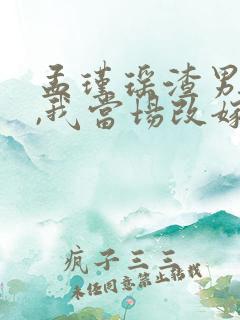 孟瑾瑶渣男
,我当场改嫁
疯子三三
未经同意禁止转载